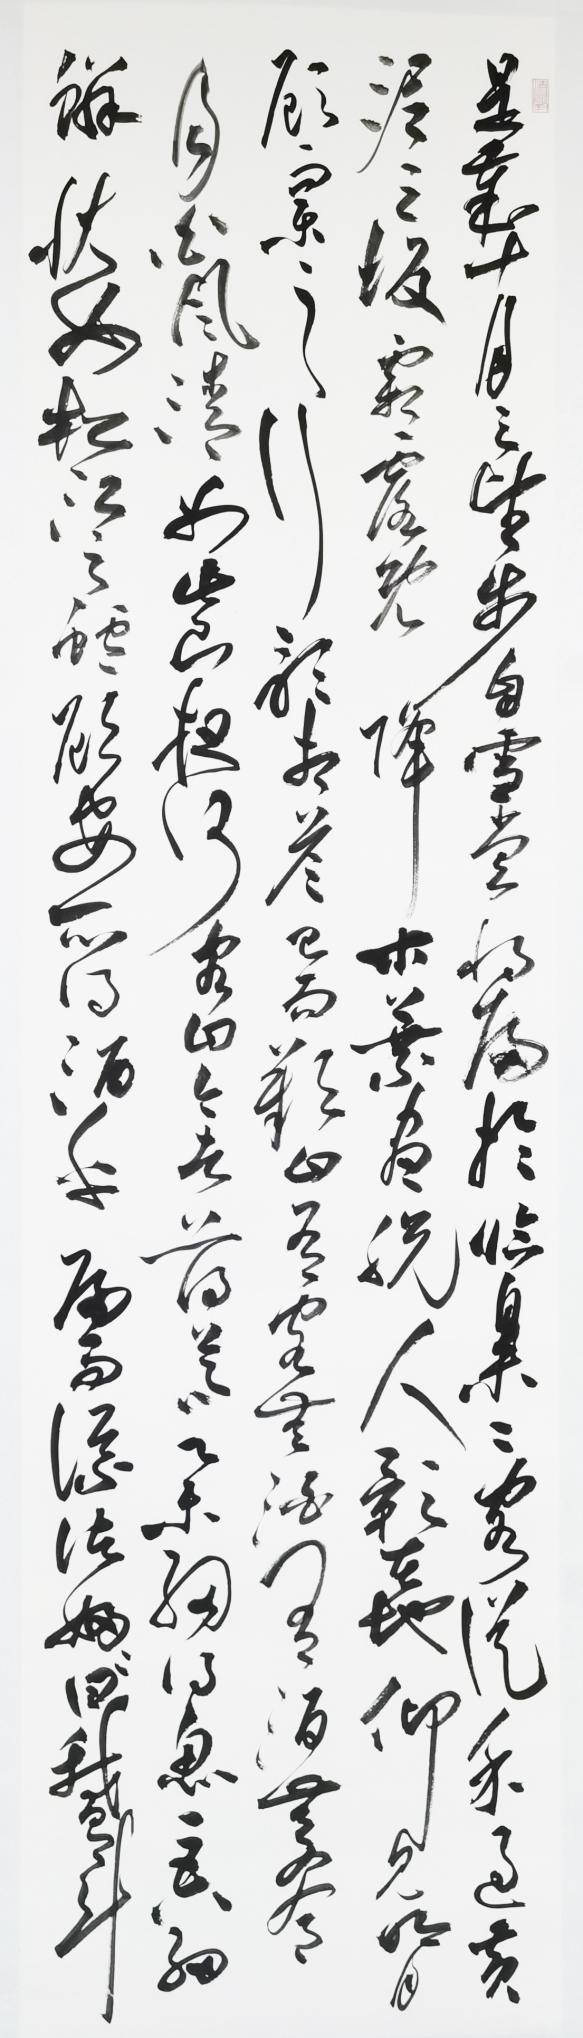 是歲十月之望步自雪堂將歸於臨皋二客從予過黃
泥之坂霜露既降木葉盡脫人影在地仰見明月
顧而樂之行歌相答已而歎曰有客無酒有酒無肴
月白風清如此良夜何客曰今者薄暮舉網得魚巨口細
鱗狀如松江之鱸顧安所得酒乎歸而謀諸婦婦曰我有斗